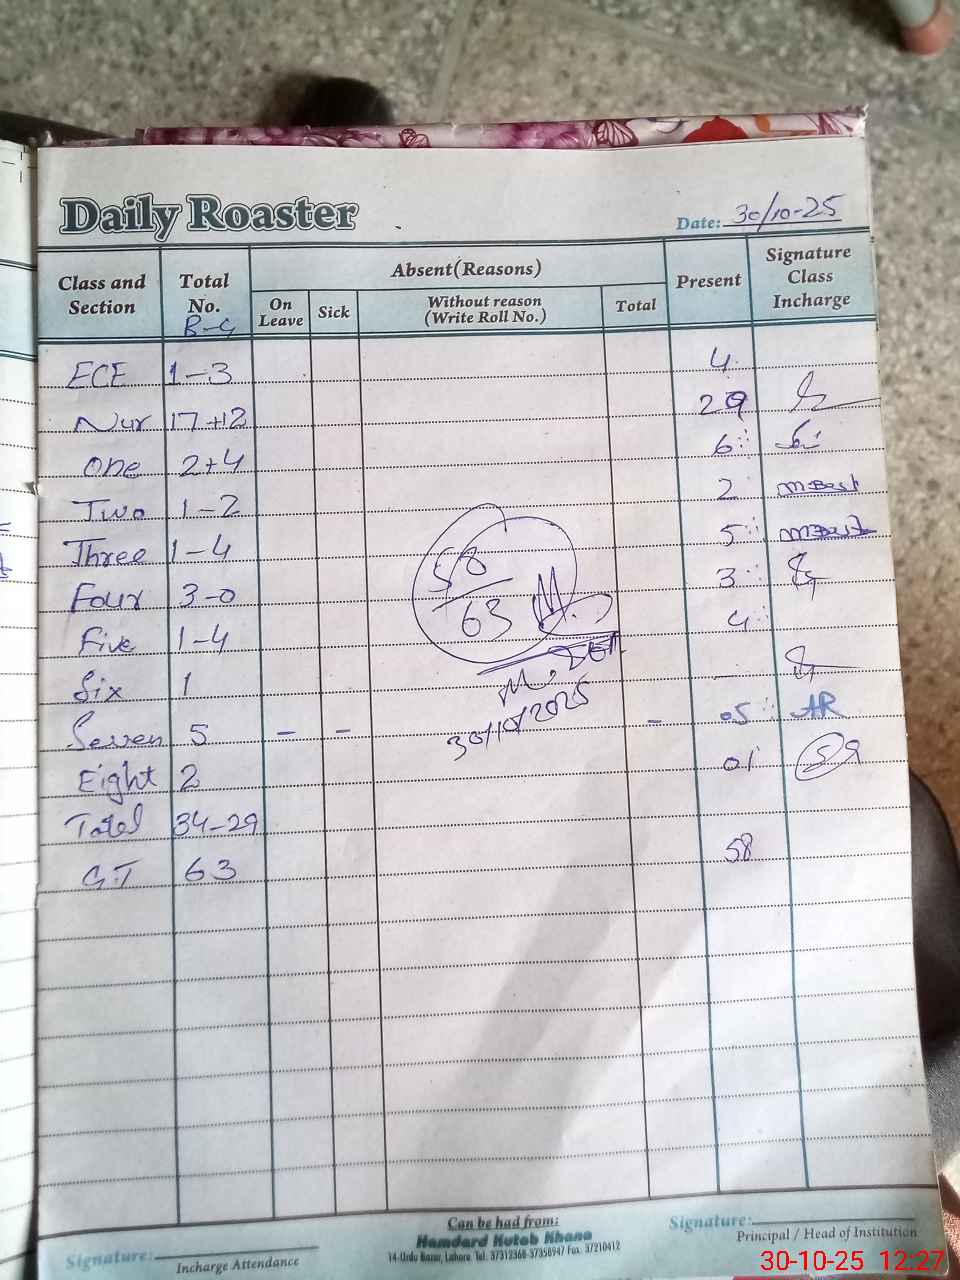 Daily Roaster
Date: 30/10-25
Class and Section Total No. Absent(Reasons) Present Signature Class Incharge
B-G On Leave Sick Without reason (Write Roll No.) Total
ECE 1-3 4
Nur 17+12 29
One 2+4 6
Two 1-2 2
Three 1-4 5
Four 3-0 3
Five 1-4 4
Six 1
Seven 5 - - - 05 AR
Eight 2 01
Total 34-29
G.T 63 58
58
63
30/10/2025
Can be had from:
Hamdard Kutab Khana
14-Urdu Bazar, Lahore. Tel: 37312368-37358947 Fax: 37210412
Signature:
Incharge Attendance
Signature:
Principal / Head of Institution
30-10-25 12:27